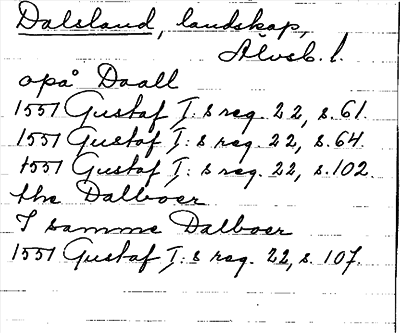 Dalsland, landskap,
Älvsb. l.
opå Daall
1551 Gustaf I:s reg. 22, s. 61.
1551 Gustaf I:s reg. 22, s. 64.
1551 Gustaf I:s reg. 22, s. 102.
the Dalboer
I samme Dalboer
1551 Gustaf I:s reg. 22, s. 107.